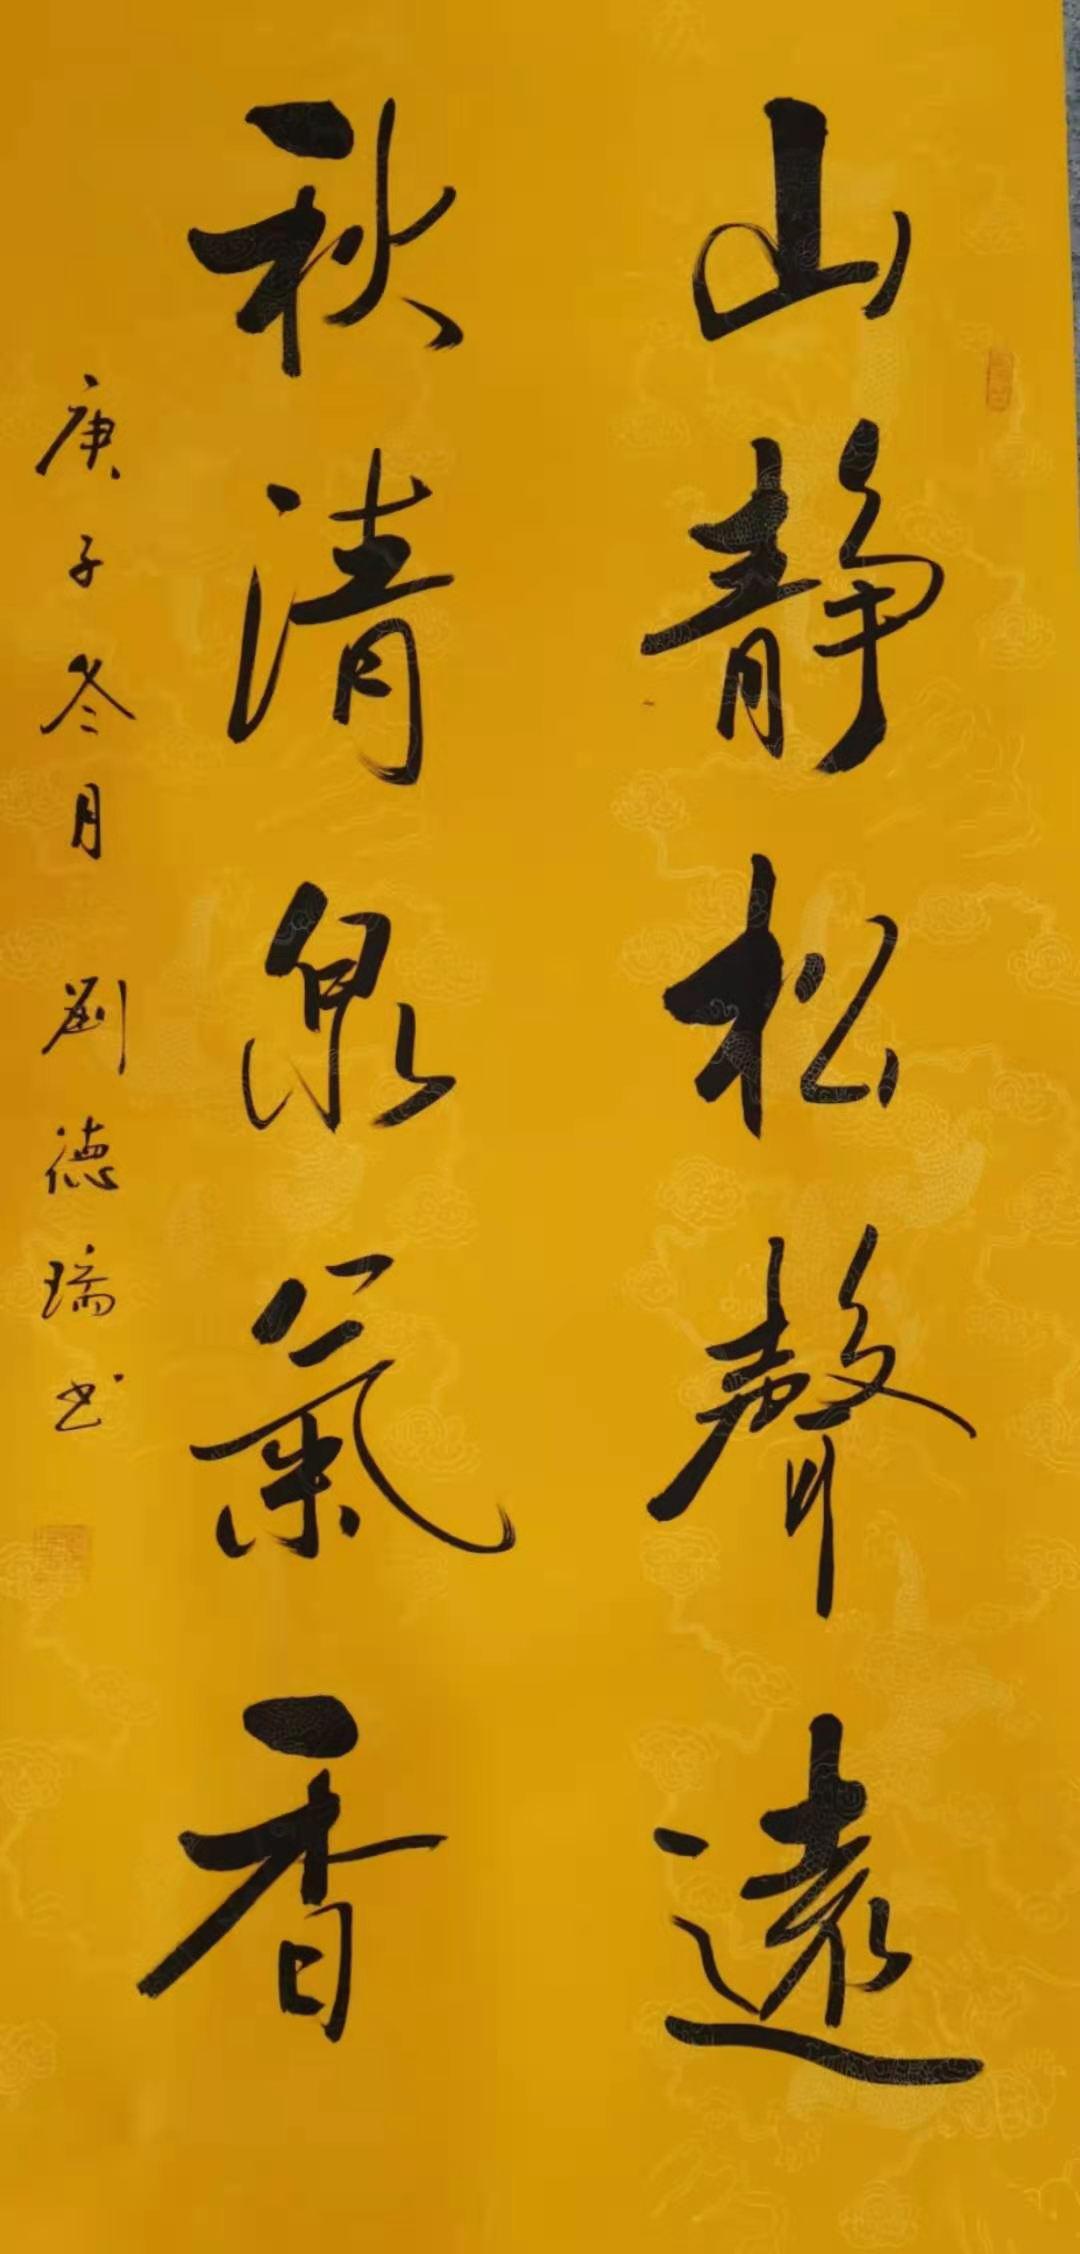 山静松聲遠
秋清泉氣香
庚子冬月劉德瑞书